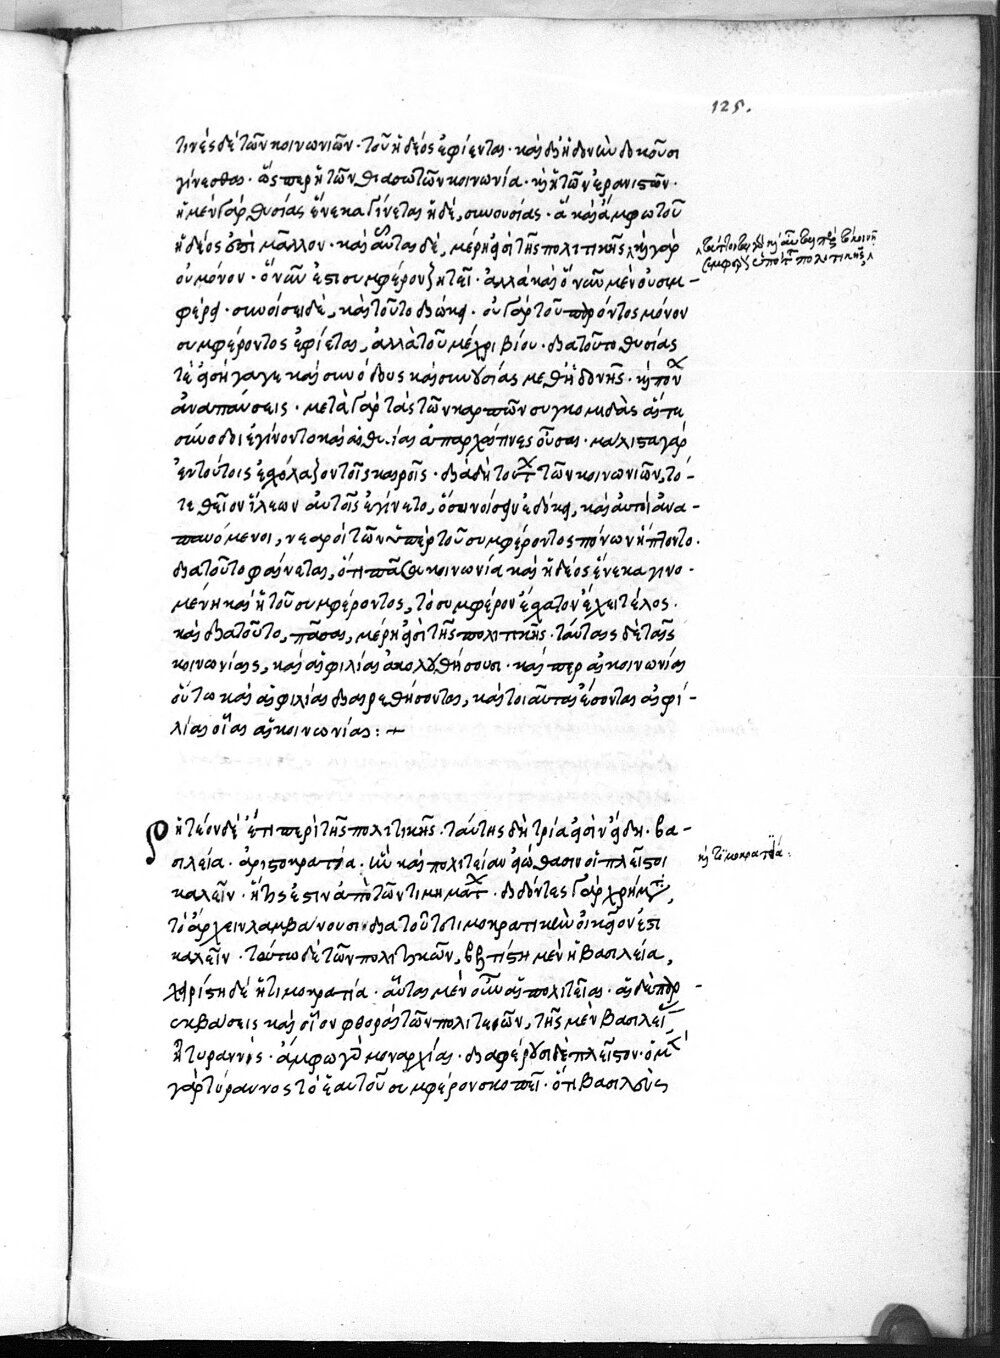 125.
τινὲς δὲ τῶν κοινωνιῶν · τοῦ ἡδέος ἐφίενται · καὶ δι' ἡδονὴν δοκοῦσι
γίνεσθαι · ὥσπερ ἡ τῶν θιασωτῶν κοινωνία · καὶ ἡ τῶν ἐρανιστῶν ·
ἡ μὲν γὰρ θυσίας ἕνεκα γίνεται ἡ δὲ, συνουσίας · ἃ καὶ ἄμφω τοῦ
ἡδέος ἐστὶ μᾶλλον · καὶ αὗται δὲ, μέρη εἰσὶ τῆς πολιτικῆς καὶ γὰρ
οὐ μόνον · ὃ νῦν ἐστι συμφέρον ζητεῖ · ἀλλὰ καὶ ὃ νῦν μὲν οὐ συμ-
φέρει · συνοίσει δὲ, καὶ τοῦτο διώκει · οὐ γὰρ τοῦ παρόντος μόνον
συμφέροντος ἐφίεται, ἀλλὰ τοῦ μέχρι βίου · διὰ τοῦτο θυσίας
τὲ εἰσήγαγε καὶ συνόδους καὶ συνουσίας μεθ' ἡδονῆς · καὶ πον
ἀναπαύσεις · μετὰ γὰρ τὰς τῶν καρπῶν συγκομιδὰς αἵ τε
σύνοδοι ἐγίνοντο καὶ αἱ θυσίαι ἀπαρχαί τινες οὖσαι · μάλιστα γὰρ
ἐν τούτοις ἐσχόλαζον τοῖς καιροῖς · διὰ δὴ τού των κοινωνιῶν, τό-
τε θεῖον ἵλεων αὐτοῖς ἐγίνετο, ὅσιον οἷς ἐδόκει, καὶ αὐτοὶ ἀνα-
παυόμενοι, νεαροὶ τῶν ὑπὲρ τοῦ συμφέροντος πόνων ἥπτοντο ·
διὰ τοῦτο φαίνεται, ὅτι πᾶσα κοινωνία καὶ ἡδέος ἕνεκα γινο-
μένη καὶ ἡ τοῦ συμφέροντος, τὸ συμφέρον ἔσχατον ἔχει τέλος ·
καὶ διὰ τοῦτο, πᾶσαι, μέρη εἰσὶ τῆς πολιτικῆς · ταύταις δὲ ταῖς
κοινωνίαις, καὶ αἱ φιλίαι ἀκολουθήσουσι · καίπερ αἱ κοινωνίαι
οὕτω καὶ αἱ φιλίαι διαιρεθήσονται, καὶ τοιαῦται ἔσονται αἱ φι-
λίαι οἷαι αἱ κοινωνίαι : +
ῥητέον δὲ ἔτι περὶ τῆς πολιτικῆς · ταύτης δὴ τρία εἰσὶν εἴδη · βα-
σιλεία · ἀριστοκρατία · ἣν καὶ πολιτείαν εἰώθασιν οἱ πλεῖστοι
καὶ τιμοκρατία :
καλεῖν · ἥτις ἐστὶν ἀπὸ τῶν τιμημάτ · διδόντες γὰρ χρήματ,
τὸ ἄρχειν λαμβάνουσι · διὰ τοῦτο τιμοκρατικὴν οἰκεῖόν ἐστι
καλεῖν · τούτω δὲ τῶν πολιτικῶν, βελτίστη μὲν ἡ βασιλεία,
χειρίστη δὲ ἡ τιμοκρατία · αὗται μὲν οὖν αἱ πολιτεῖαι · αἱ δὲ παρ-
εκβάσεις καὶ οἷον φθοραὶ τῶν πολιτειῶν, τῆς μὲν βασιλεί
ἡ τυραννίς · ἄμφω γὰρ μοναρχίαι · διαφέρουσι δὲ πλεῖστον · ὁ μ
γὰρ τύραννος τὸ ἑαυτοῦ συμφέρον σκοπεῖ · ὅτι βασιλεὺς